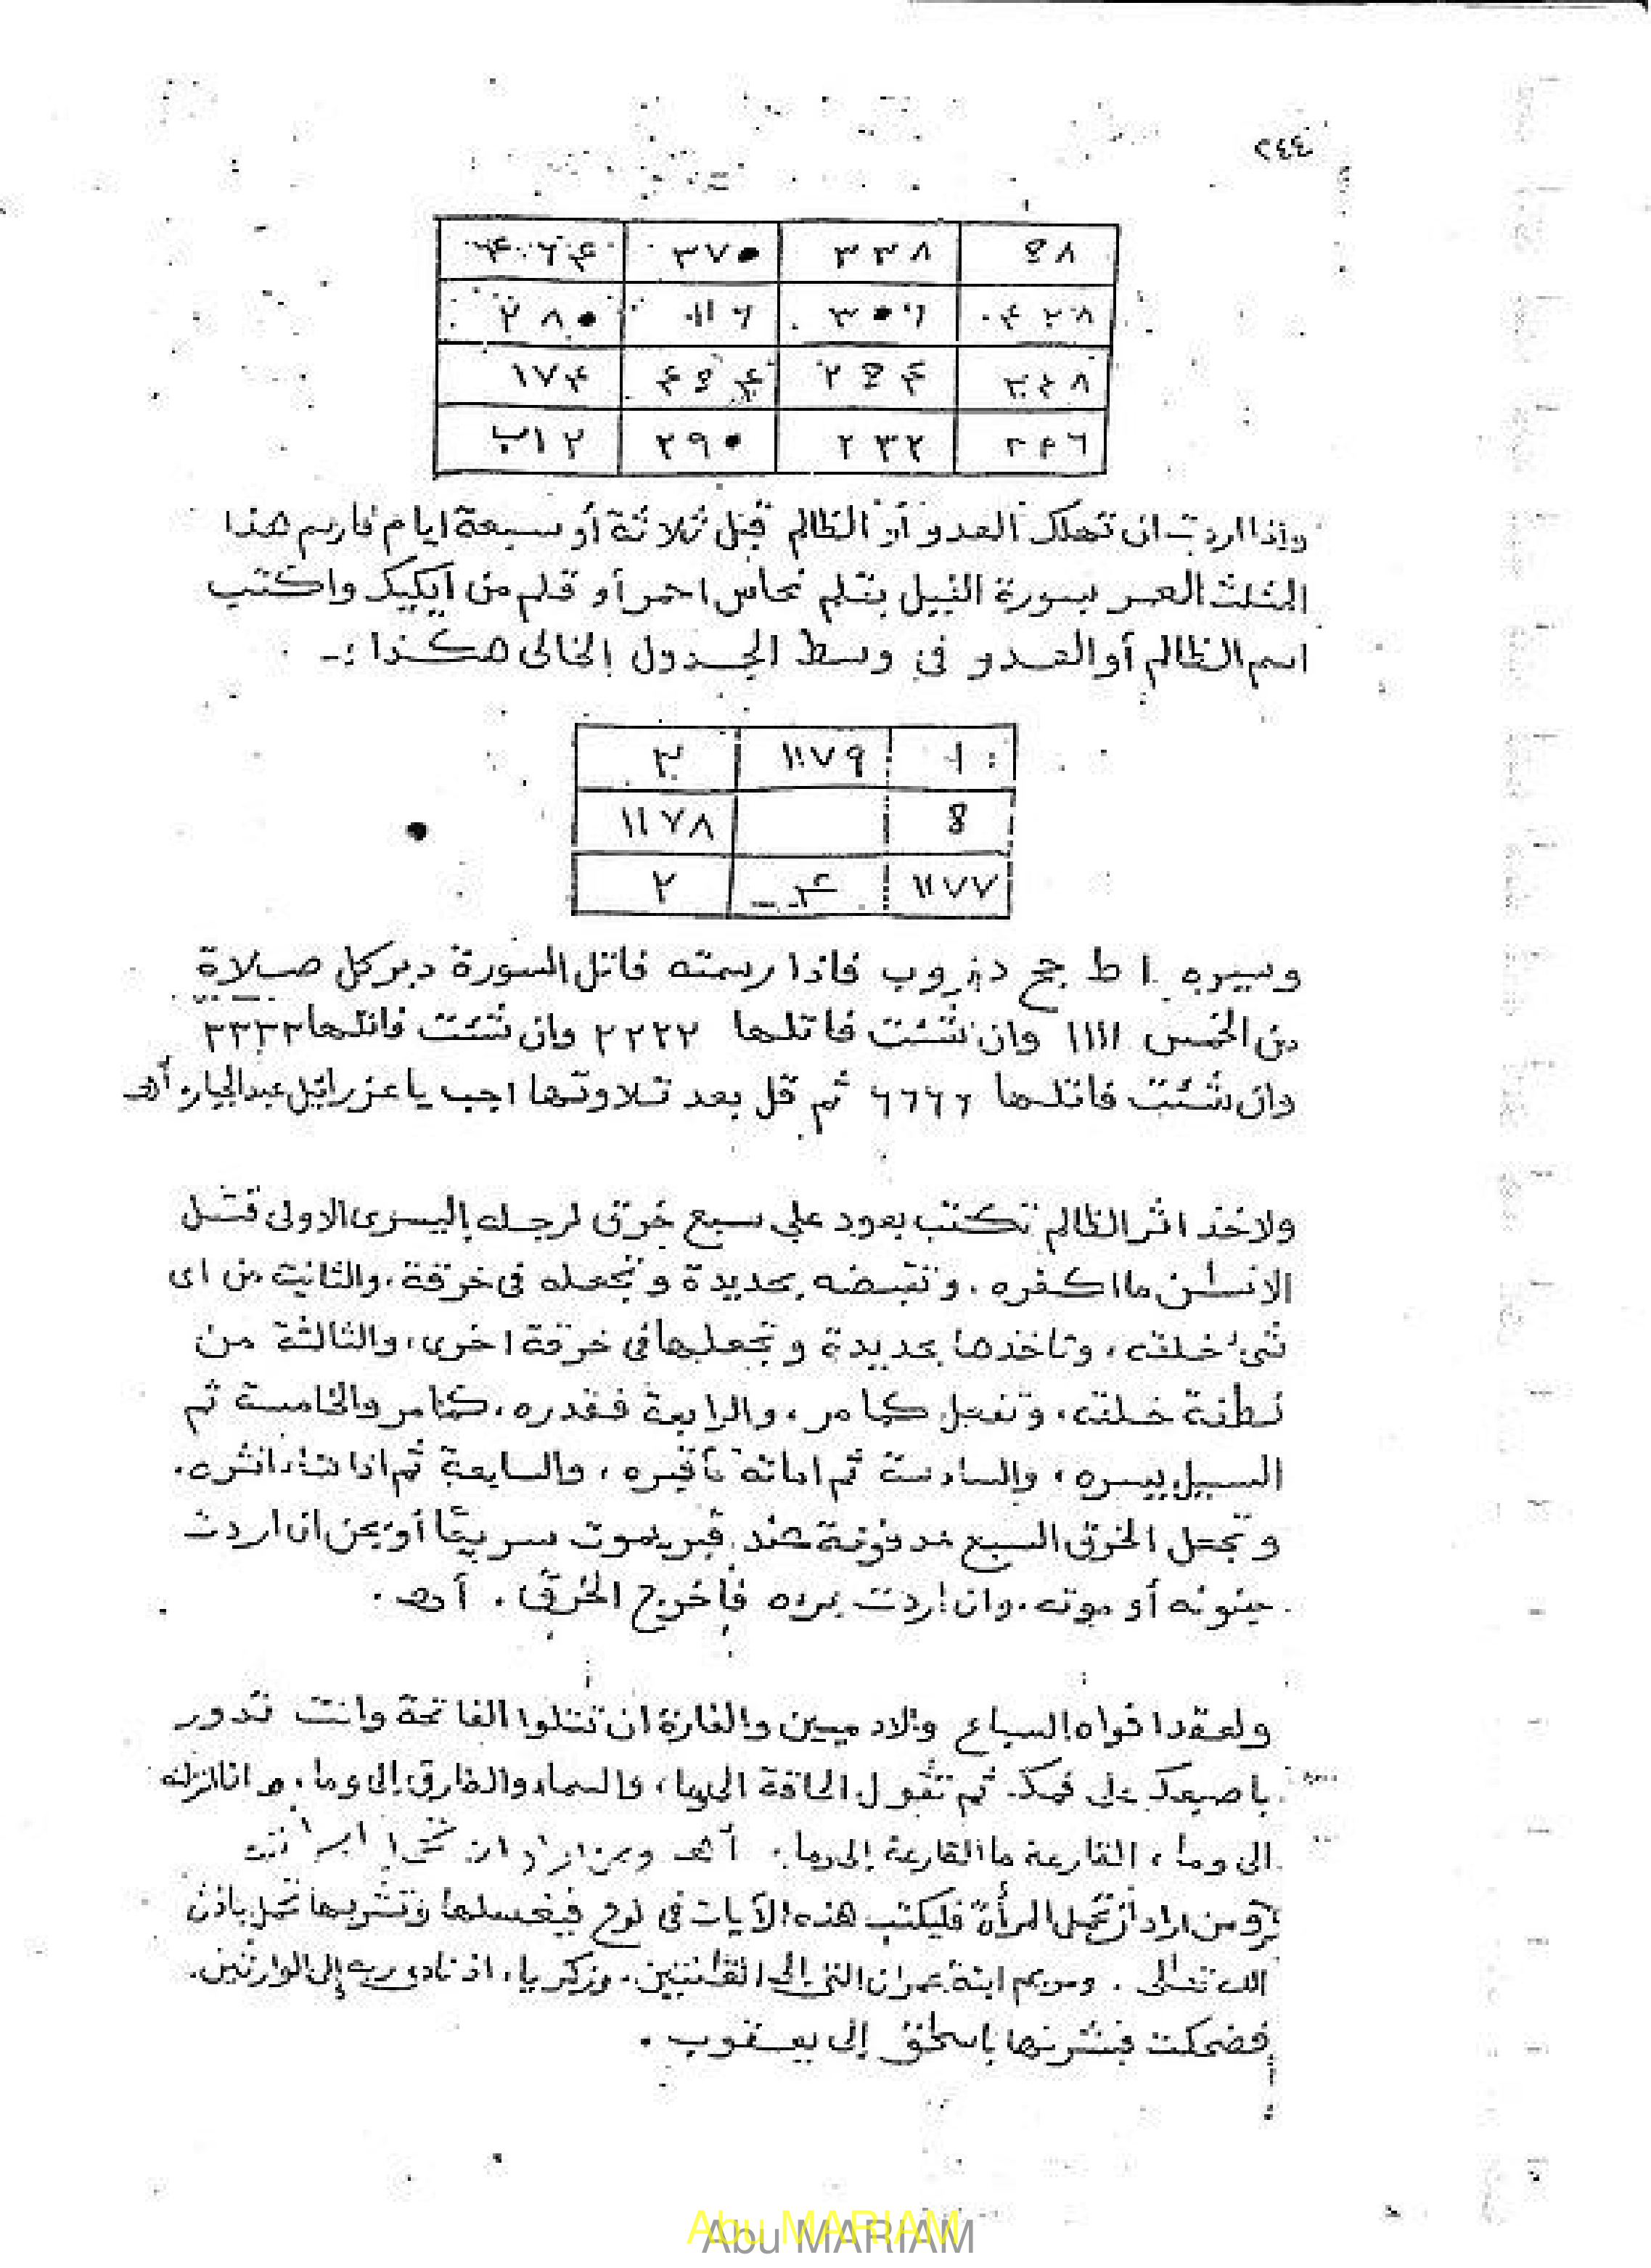 ٢٤٤
٥٨ ٣٣٨ ٣٧٠ ٤٠٦٤
٤٢٨ ٣٠٦ ١١٦ ٢٨٠
٨ ٢٥٤ ٤٥٤ ١٧٤
٢٣٢ ٢٩٠ ٢اب
وإذا اردت ان تهلك العدو أو الظالم قبل ثلاثة أو سبعة ايام فارسم هذا
المثلث بسورة الفيل بقلم نحاس احمر أو قلم من واكتب
اسم الظالم أو العدو في وسط الجدول الخالى هكذا :-
١ ١١٧٩ ٣
٥ ١١٧٨
١١٧٧ ٤ ٢
وسيره ا ط جح وب فاذا رسمته فاتل السورة دبر كل صلاة
من الخمس ١١١١ وان شئت فاتلها ٢٢٢٢ وان شئت فاتلها ٣٣٣٣
وان شئت فاتلها ٦٦٦٦ ثم قل بعد تلاوتها اجب يا عزرائيل عبد الجبار أهـ
ولاخذ اثر الظالم تكتب بعود على سبع خرق لرجله اليسرى الاولى قتل
الانسٰن ما اكفره . وتقبضه بحديدة وتجعله فى خرقة ، والثانية من اى
شىء خلقه ، وتاخذها بحديدة وتجعلها فى خرقة اخرى ، والثالثة من
نطفة خلقه ، وتفعل كما مر ، والرابعة فقدره ، كما مر والخامسة ثم
السبيل يسره ، والسادسة ثم اماته فأقبره ، والسابعة ثم اذا شاء انشره .
وتجعل الخرق السبع مدفونة عند قبر يموت سريعا أو يجن ان اردت
جنونه أو موته . وان اردت برءه فأخرج الخرق . أهـ .
ولعقد افواه السباع والادميين والغارة ان تتلوا الفاتحة وانت تدور
باصبعك على فمك ثم تقول الحاقة الى وما ، والسماء والطارق إلى وما ، و انا انزلنه
الى وما ، القارعة ما القارعة إلى وما . أهـ ومن اراد ان
ومن اراد ان تحمل المرأة فليكتب هذه الآيات فى لوح فيغسلها وتشربها تحمل باذن
الله تعالى . ومريم ابنة عمران التى إلى القانتين . وزكريا ، اذ نادى ربه إلى الوارثين .
فضحكت فبشرنها باسحٰق إلى يعقوب .
Abu MARIAM